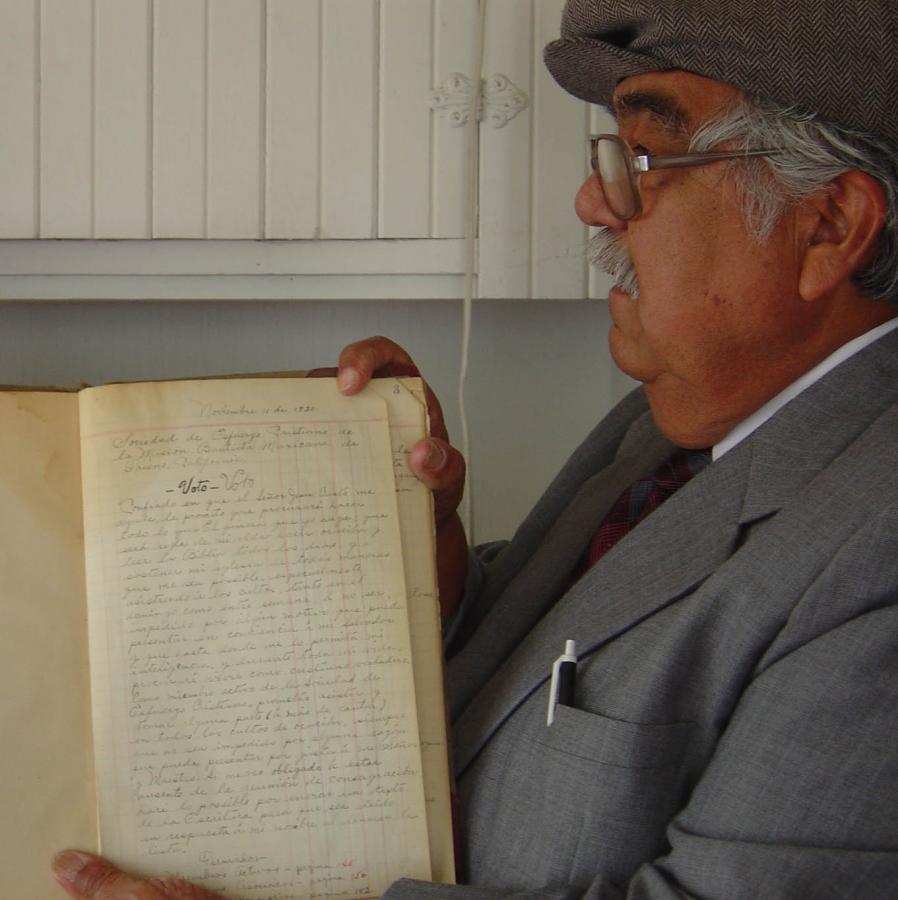 3
Noviembre 11 de 1920
Sociedad de Esfuerzo Cristiano de
la Mision Bautista Mexicana de
California
- Voto - Voto
Confiado en que el Señor Jesu Cristo me
ayude, le prometo que procuraré hacer
todo lo que El quiera que yo haga; que
será regla de mi vida hacer oración y
leer la Biblia todos los dias, y
sostener mi iglesia de todas maneras
que me sea posible, especialmente
asistiendo á los cultos, tanto en el
domingo como entre semana, á no ser
impedido por algun motivo que pueda
presentar en conciencia á mi Salvador
y que hasta donde me lo permita mi
inteligencia, y durante toda mi vida,
procuraré vivir como cristiano verdadero
Como miembro activo de la Sociedad de
Esfuerzo Cristiano, prometo asistir y
tomar alguna parte (á más de cantar)
en todos los cultos de oración, siempre
que no sea impedido por alguna razón
que pueda presentar por justa á mi Señor
y Maestro. Si me veo obligado á estar
ausente de la reunión de consagración
haré lo posible por enviar un texto
de la Escritura para que sea leido
en respuesta á mi nombre al llamar la
lista.
Miembros Activos - página
página
página 162